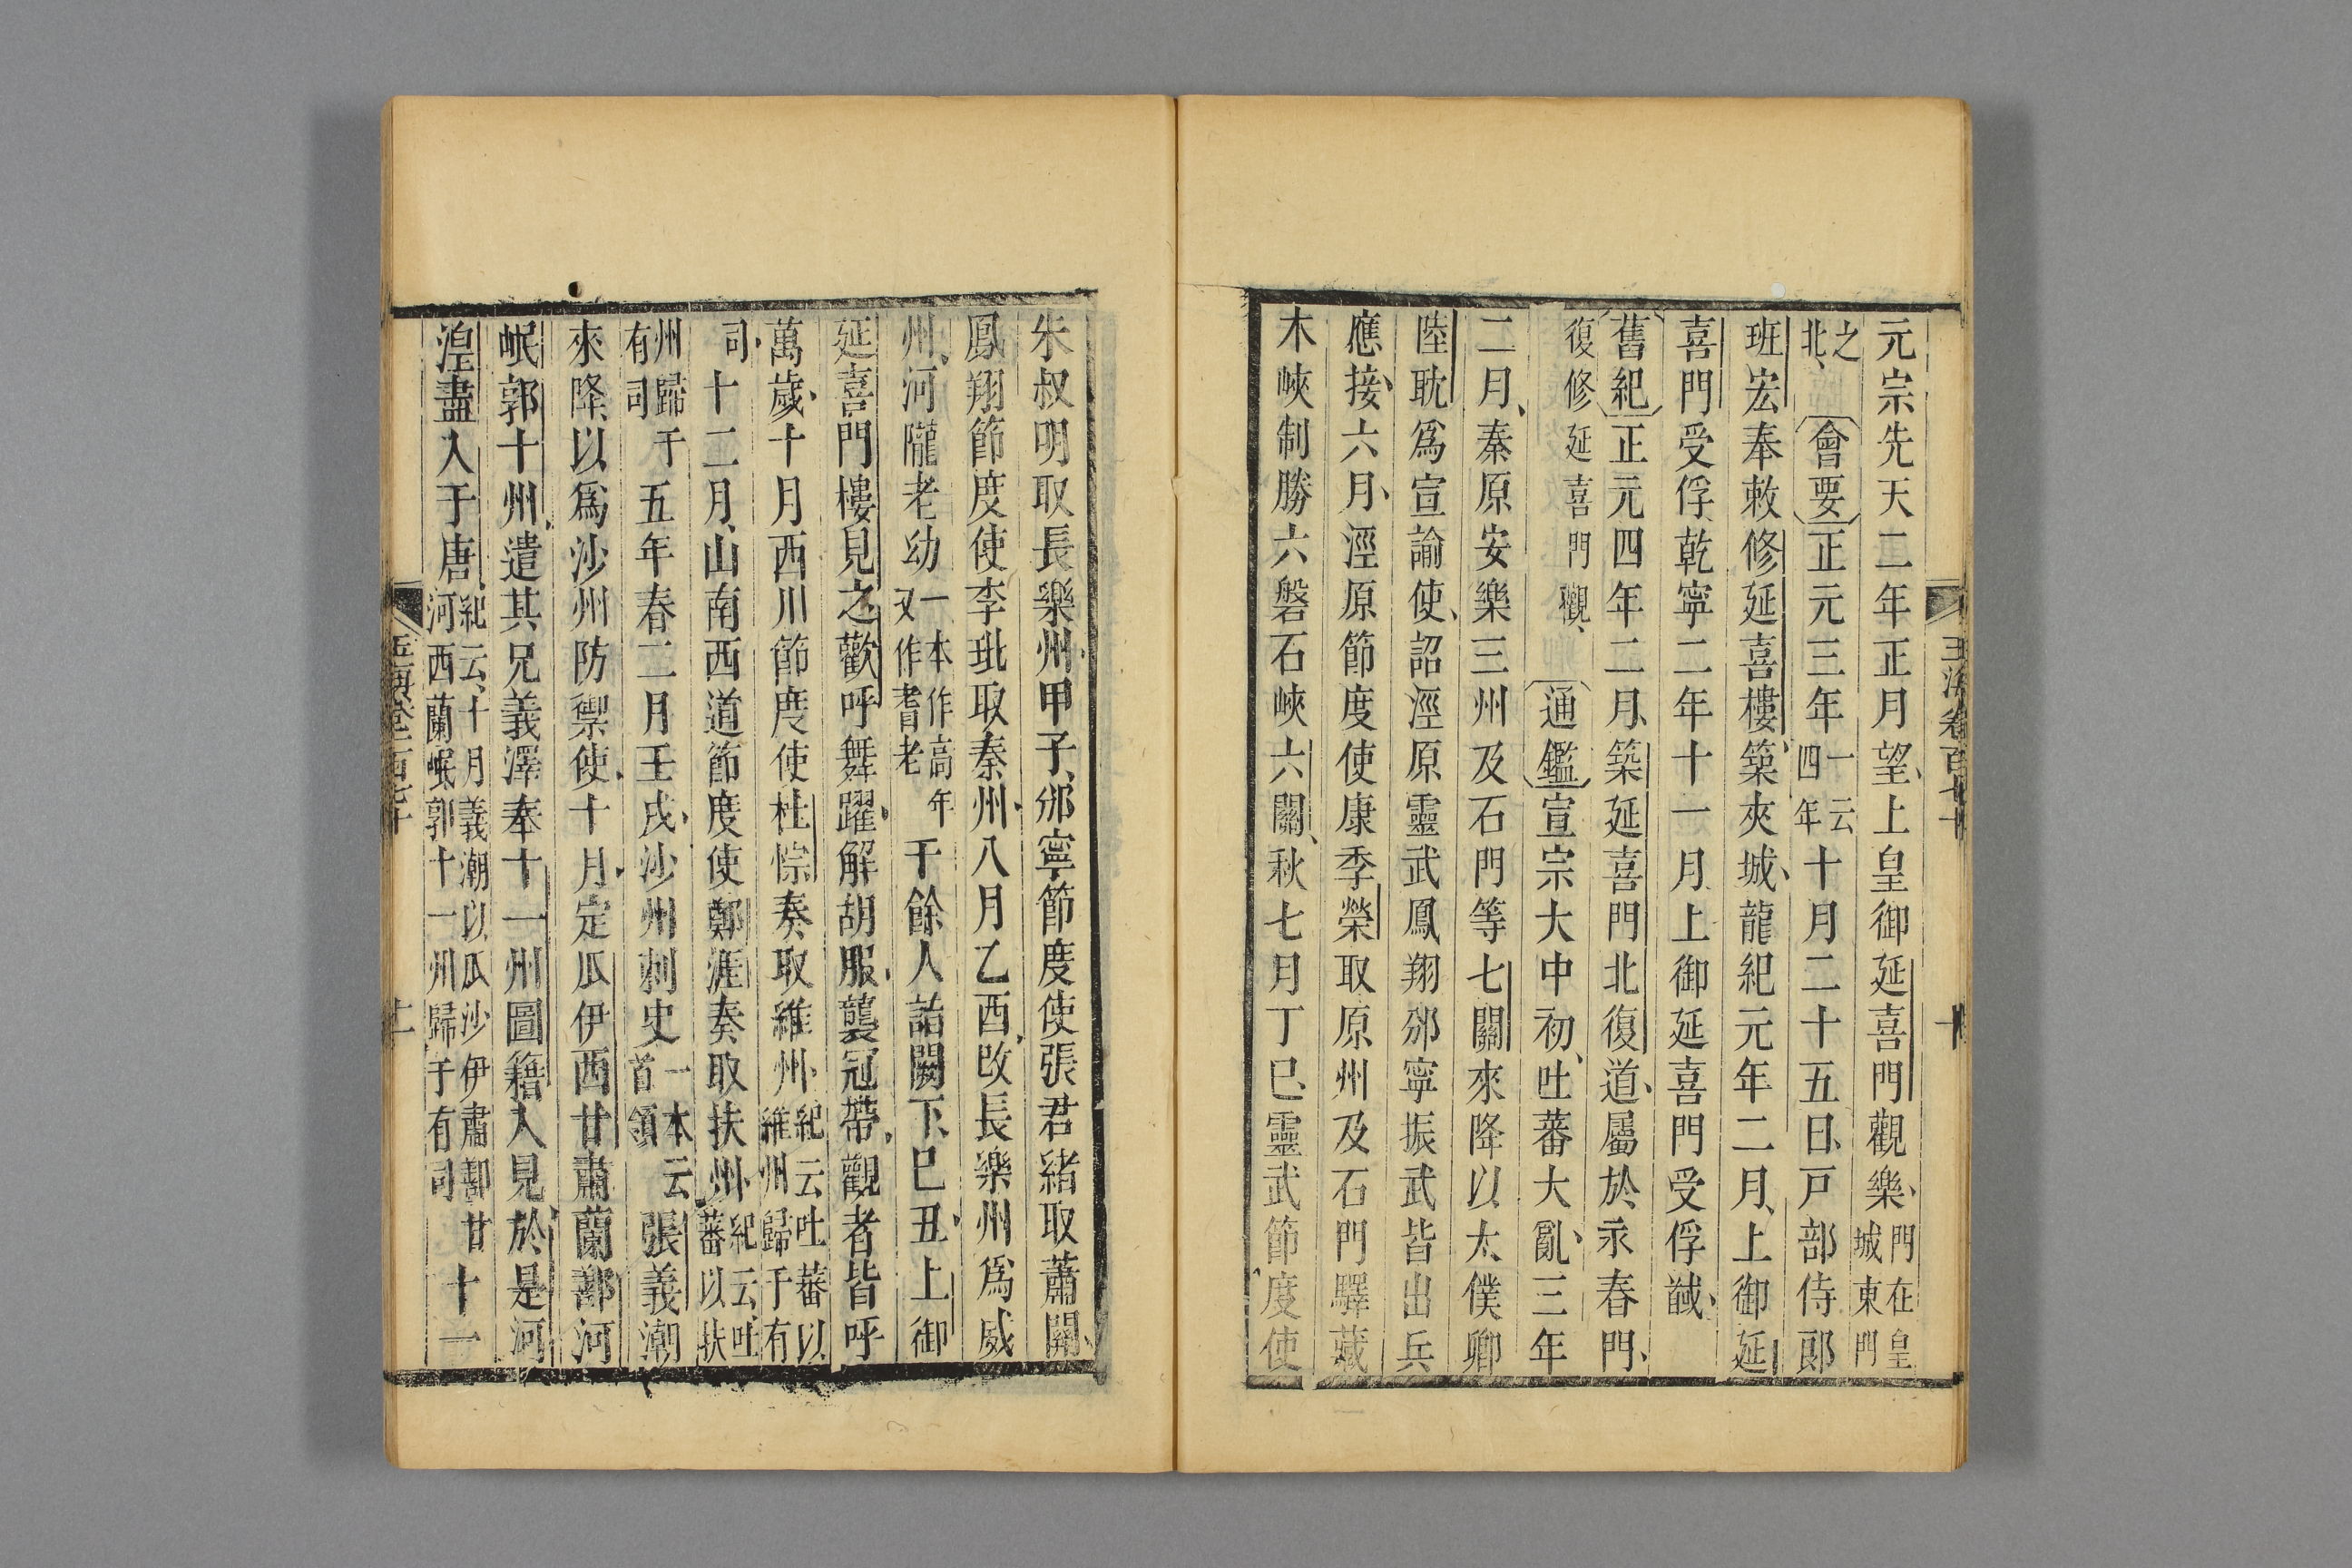 元宗先天二年正月望上皇御延喜門觀樂門在皇城東門
之北會要正元三年一云四年十月二十五日戸部侍郎
班宏奉敕修延喜樓築夾城龍紀元年二月上御延
喜門受俘乾寧二年十一月上御延喜門受俘馘
舊紀正元四年二月築延喜門北復道屬於永春門
復修延喜門觀通鑑宣宗大中初吐蕃大亂三年
二月秦原安樂三州及石門等七關來降以太僕卿
陸耽爲宣諭使詔涇原靈武鳳翔邠寧振武皆出兵
應接六月涇原節度使康季榮取原州及石門驛藏
木峽制勝六磐石峽六關秋七月丁巳靈武節度使
玉海卷百七十
十
朱叔明取長樂州甲子邠寧節度使張君緒取蕭關
鳳翔節度使李玭取秦州八月乙酉改長樂州爲威
州河隴老幼一本作高年又作耆老千餘人詣闕下己丑上御
延喜門樓見之歡呼舞躍解胡服襲冠帶觀者皆呼
萬歲十月西川節度使杜悰奏取維州紀云吐蕃以維州歸于有
司十二月山南西道節度使鄭涯奏取扶州紀云吐蕃以扶
州歸于有司五年春二月壬戌沙州刺史一本云首領張義潮
來降以爲沙州防禦使十月定瓜伊西甘肅蘭鄯河
岷郭十州遣其兄義澤奉十一州圖籍入見於是河
湟盡入于唐紀云十月義潮以瓜沙伊肅鄯甘河西蘭岷郭十一州歸于有司十一